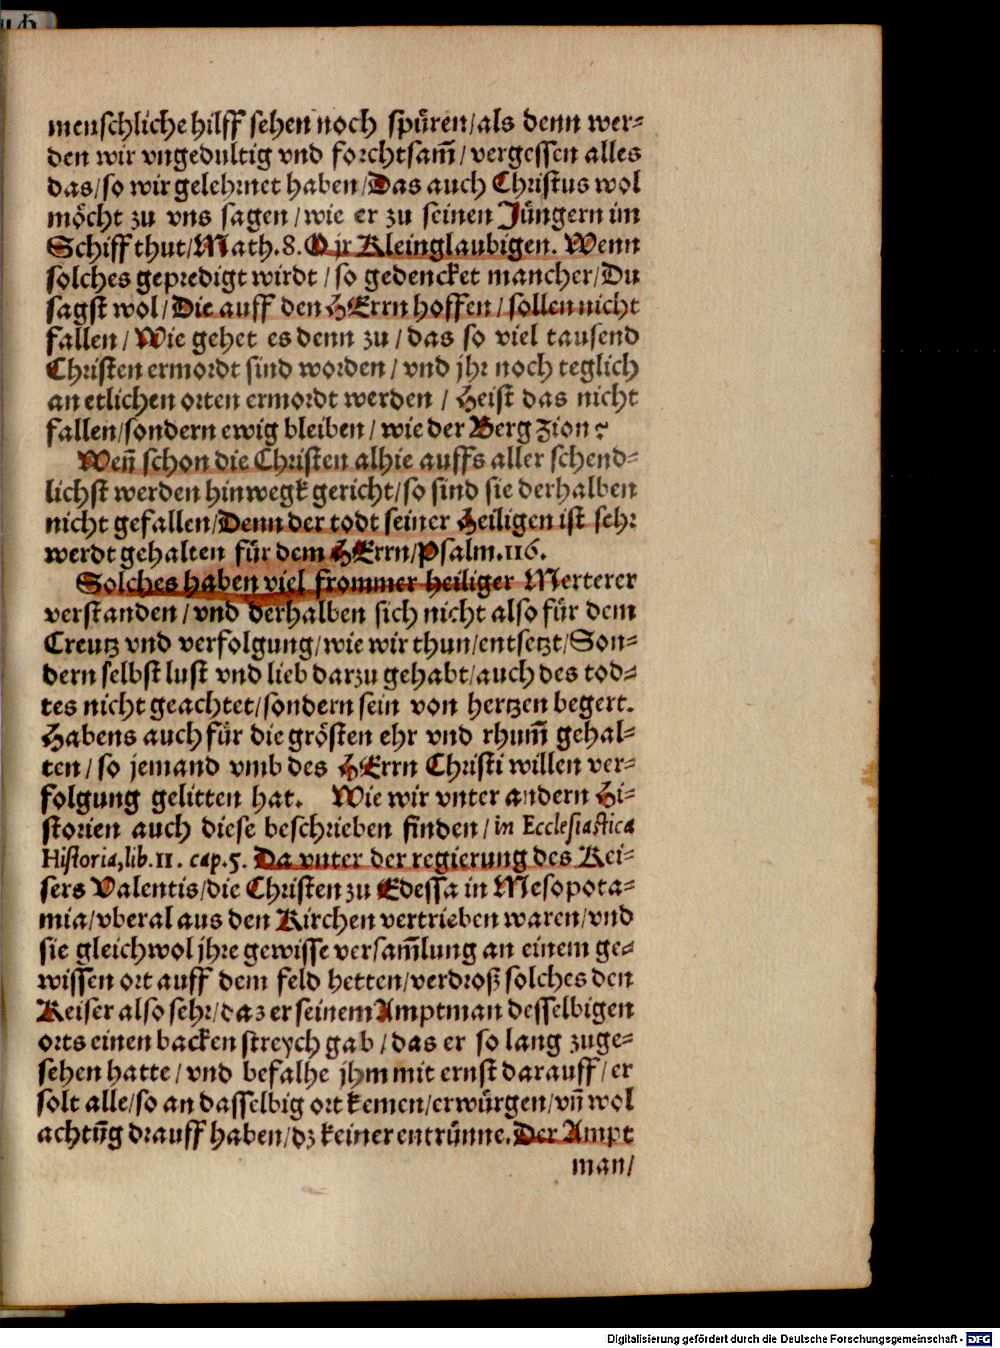 menschliche hilff sehen noch spüren/als denn wer-
den wir vngedultig vnd forchtsam̃/vergessen alles
das/so wir gelehrnet haben/Das auch Christus wol
möcht zu vns sagen/wie er zu seinen Jüngern im
Schiff thut/Math.8. O jr Kleinglaubigen. Wenn
solches gepredigt wirdt/so gedencket mancher/Du
sagst wol/Die auff den HErrn hoffen/sollen nicht
fallen/Wie gehet es denn zu/das so viel tausend
Christen ermordt sind worden/vnd jhr noch teglich
an etlichen orten ermordt werden/Heist das nicht
fallen/sondern ewig bleiben/wie der Berg Zion?
Weñ schon die Christen alhie auffs aller schend-
lichst werden hinwegk gericht/so sind sie derhalben
nicht gefallen/Denn der todt seiner Heiligen ist sehr
werdt gehalten für dem HErrn/Psalm.116.
Solches haben viel frommer heiliger Merterer
verstanden/vnd derhalben sich nicht also für dem
Creutz vnd verfolgung/wie wir thun/entsetzt/Son-
dern selbst lust vnd lieb darzu gehabt/auch des tod-
tes nicht geachtet/sondern sein von hertzen begert.
Habens auch für die grösten ehr vnd rhum̃ gehal-
ten/so jemand vmb des HErrn Christi willen ver-
folgung gelitten hat. Wie wir vnter andern Hi-
storien auch diese beschrieben finden/in Ecclesiastica
Historia, lib.11. cap.5. Da vnter der regierung des Kei-
sers Valentis/die Christen zu Edessa in Mesopota-
mia/vberal aus den Kirchen vertrieben waren/vnd
sie gleichwol jhre gewisse versam̃lung an einem ge-
wissen ort auff dem feld hetten/verdroß solches den
Keiser also sehr/daz er seinem Amptman desselbigen
orts einen backen streych gab/das er so lang zuge-
sehen hatte/vnd befalhe jhm mit ernst darauff/er
solt alle/so an dasselbig ort kemen/erwürgen/vñ wol
achtũg drauff haben/dz keiner entrünne. Der Ampt
man/
Digitalisierung gefördert durch die Deutsche Forschungsgemeinschaft - DFG